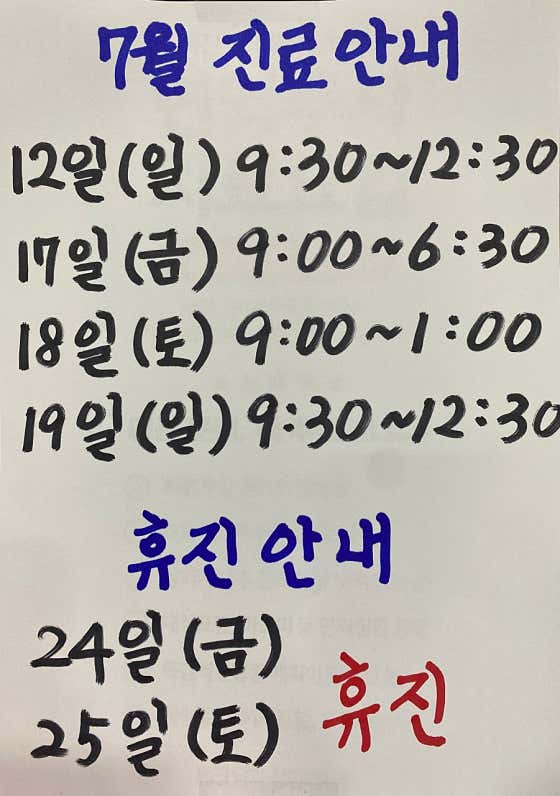 7월 진료안내
12일(일) 9:30~12:30
17일(금) 9:00~6:30
18일(토) 9:00~1:00
19일(일) 9:30~12:30
휴진 안내
24일(금)
25일(토) 휴진